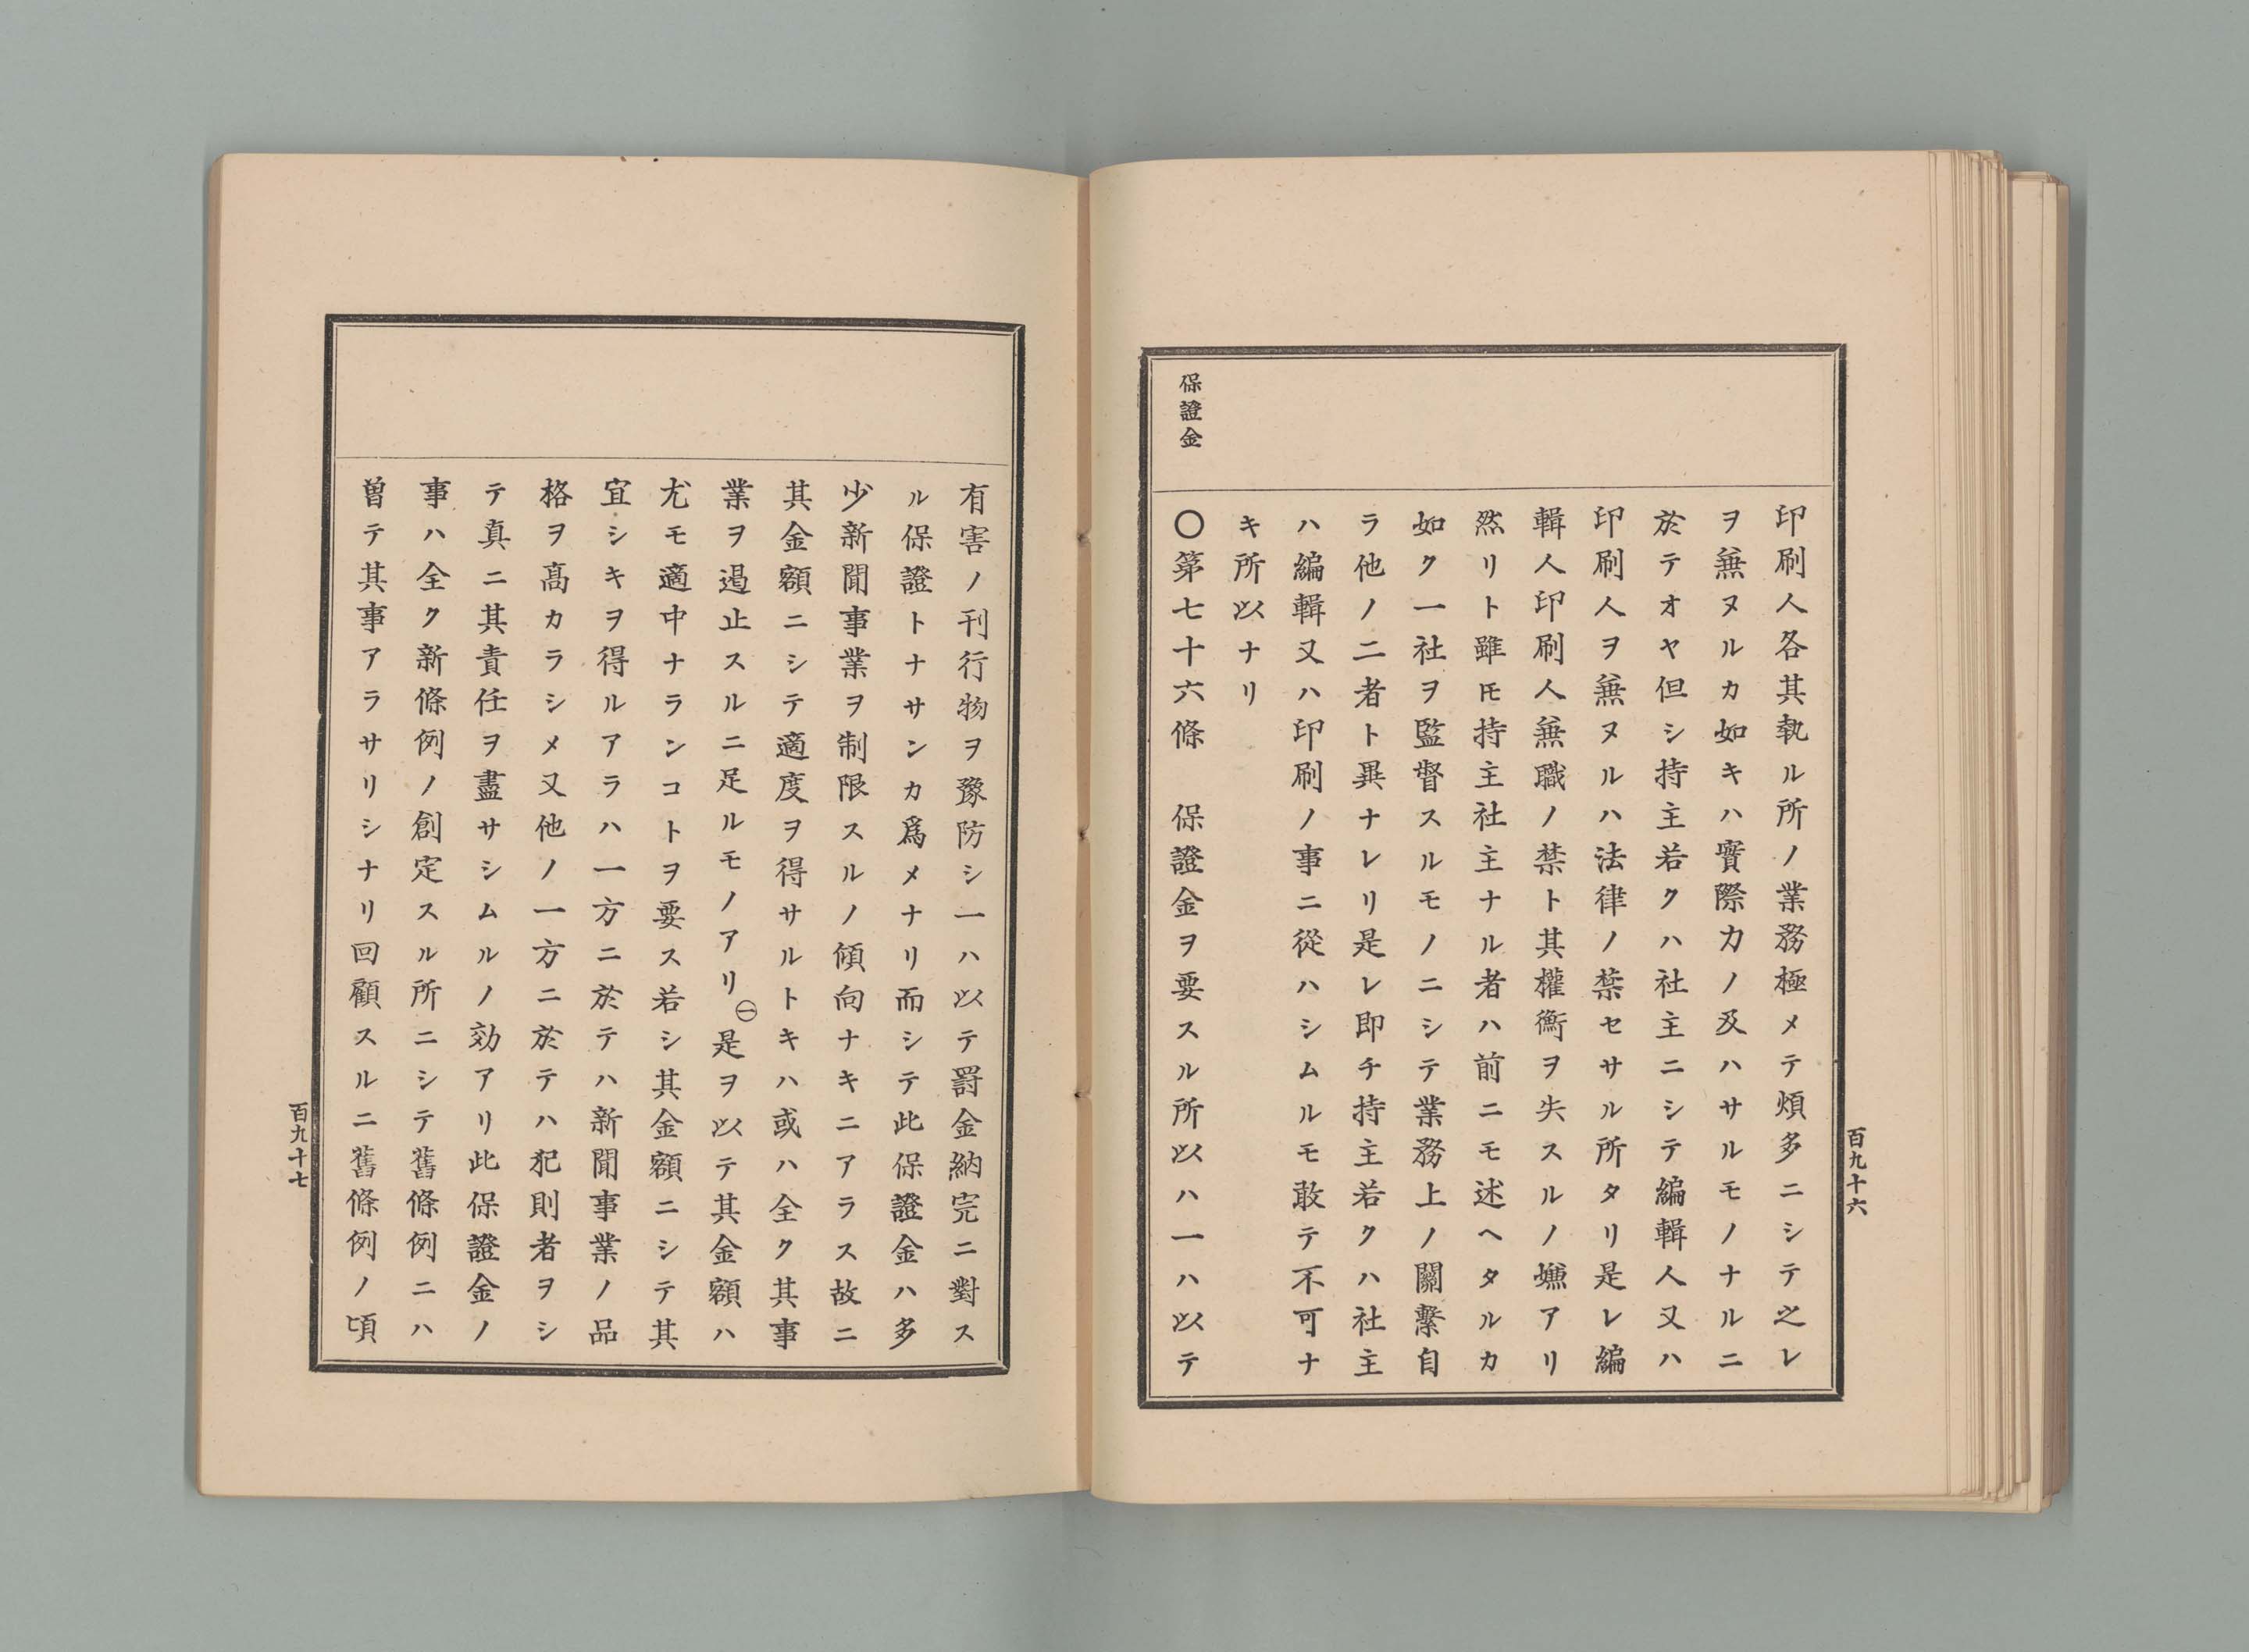 百九十六
印刷人各其執ル所ノ業務極メテ煩多ニシテ之レ
ヲ兼ヌルカ如キハ實際力ノ及ハサルモノナルニ
於テオヤ但シ持主若クハ社主ニシテ編輯人又ハ
印刷人ヲ兼ヌルハ法律ノ禁セサル所タリ是レ編
輯人印刷人兼職ノ禁ト其權衡ヲ失スルノ嫌アリ
然リト雖𪜈持主社主ナル者ハ前ニモ述ヘタルカ
如ク一社ヲ監督スルモノニシテ業務上ノ關繫自
ラ他ノ二者ト異ナレリ是レ即チ持主若クハ社主
ハ編輯又ハ印刷ノ事ニ從ハシムルモ敢テ不可ナ
キ所以ナリ
保證金
〇第七十六條　保證金ヲ要スル所以ハ一ハ以テ
有害ノ刊行物ヲ豫防シ一ハ以テ罸金納完ニ對ス
ル保證トナサンカ爲メナリ而シテ此保證金ハ多
少新聞事業ヲ制限スルノ傾向ナキニアラス故ニ
其金額ニシテ適度ヲ得サルトキハ或ハ全ク其事
業ヲ遏止スルニ足ルモノアリ㊀是ヲ以テ其金額ハ
尤モ適中ナランコトヲ要ス若シ其金額ニシテ其
宜シキヲ得ルアラハ一方ニ於テハ新聞事業ノ品
格ヲ髙カラシメ又他ノ一方ニ於テハ犯則者ヲシ
テ真ニ其責任ヲ盡サシムルノ効アリ此保證金ノ
事ハ全ク新條例ノ創定スル所ニシテ舊條例ニハ
曽テ其事アラサリシナリ回顧スルニ舊條例ノ頃
百九十七